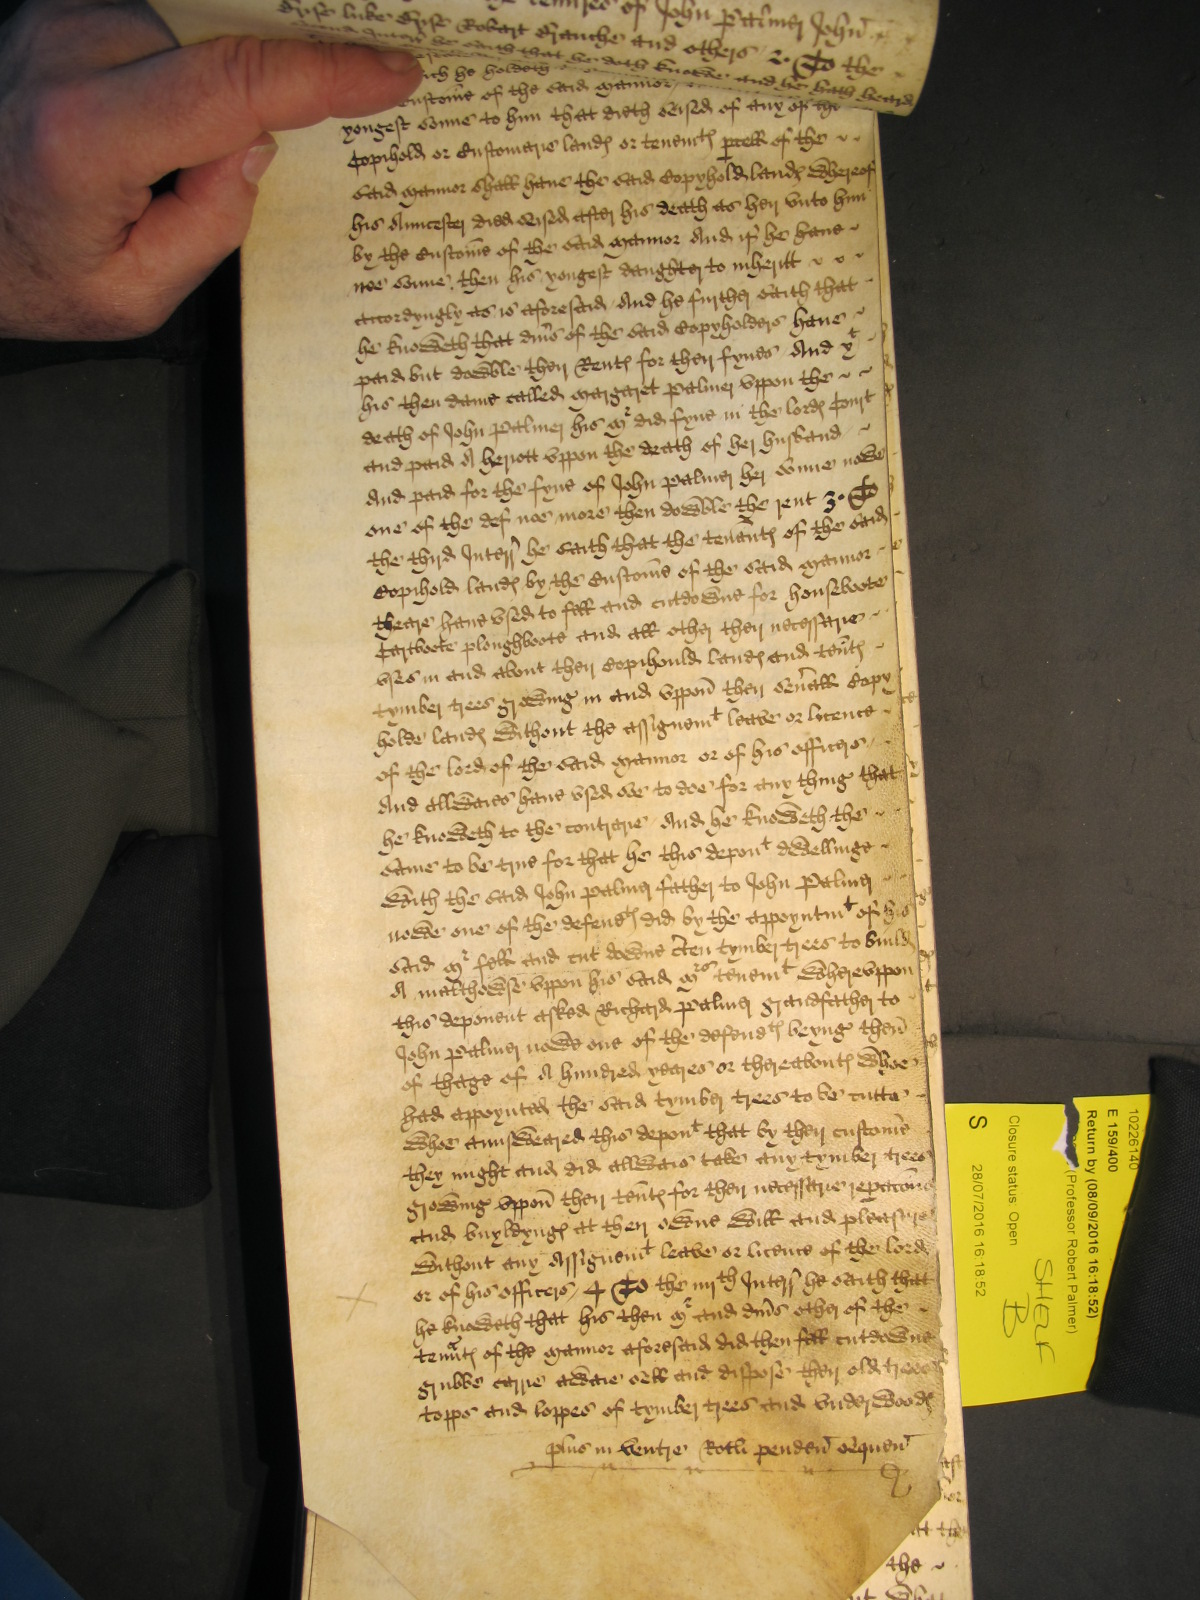 the tenures of John Palmer John
Dyse luke Dyse Robart Branche and others 2. To the
he saith that he doth knowe and he hath heard
which he holdeth
customs of the said mannor
yongest sonne to him that dieth seised of any of the
Copihold or Customarie landes or tenemtes pcell of the
said mannor shall have the said Copyhold landes Whereof
his Auncester died seised after his death as heir unto him
by the Custome of the said mannor And if he have
noe sonne, then his yongest daughter to inheritt
accordyngly as is aforesaid. And he further saith that
he knoweth that divs of the said Copyholders have
paid but dowble their Rentes for their fynes And yt
his then dame called Margaret Palmer uppon the
death of John Palmer his Mr did fyne in the lordes Court
and paid A heriott uppon the death of her husband
And paid for the fyne of John Palmer her sonne nowe
one of the def noe more then dowble the rent 3. To
the third Interr he saith that the tenantes of the said
Copihold landes by the Custome of the said mannor
theare have used to fell and cutdowne for houseboote
Cartboote ploughboote and all other their necessarie
uses in and about their Copihould landes and tentes
tymber trees growing in and uppon their severall Copy
holde landes Without the assignemt leave or licence
of the lord of the said mannor or of his officers
And allwaies have used soe to doe for any thing that
he knoweth to the contrarie And he knoweth the
same to be true for that he this depont dwellinge
With the said John Palmer father to John Palmer
nowe one of the defendtes did by the appoyntmt of his
said Mr fell and cut downe cten tymber trees to build
A malthowse uppon his said Mrs tenemt Whereuppon
this deponent asked Richard Palmer grandfather to
John Palmer nowe one of the defendtes beyng then
of thage of A hundred yeares or thereaboutes Whoe
had appoynted the said tymber trees to be cutte
Whoe aunsweared this depont that by their custome
they might and did allwais take any tymber trees
growing uppon their tentes for their necessarie repacons
and buyldynges at their owne Will and pleasure
Without any Assignemt leave or licence of the lord
or of his officers, 4 To the iiiith Interr he saith that
he knoweth that his then Mr and divs other of the
tenntes of the mannor aforesaid did then fell cutdowne
grubbe carrie awaie sell and dispose their old trees
topps and loppes of tymber trees and underwoodes
plus in ventre Rotli penden sequen
10226140
E 159/400
Return by (08/09/2016 16:18:52)
(Professor Robert Palmer)
Closure status: Open
S 28/07/2016 16:18:52
SHELF
B